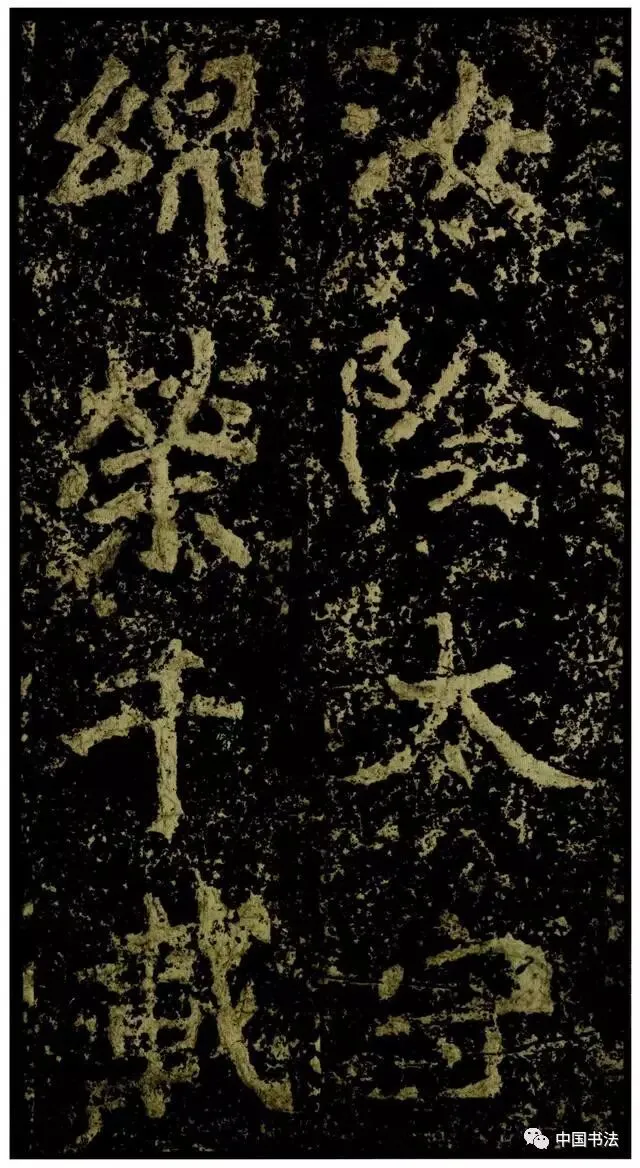 汝陰太守
綿榮千載
中国书法